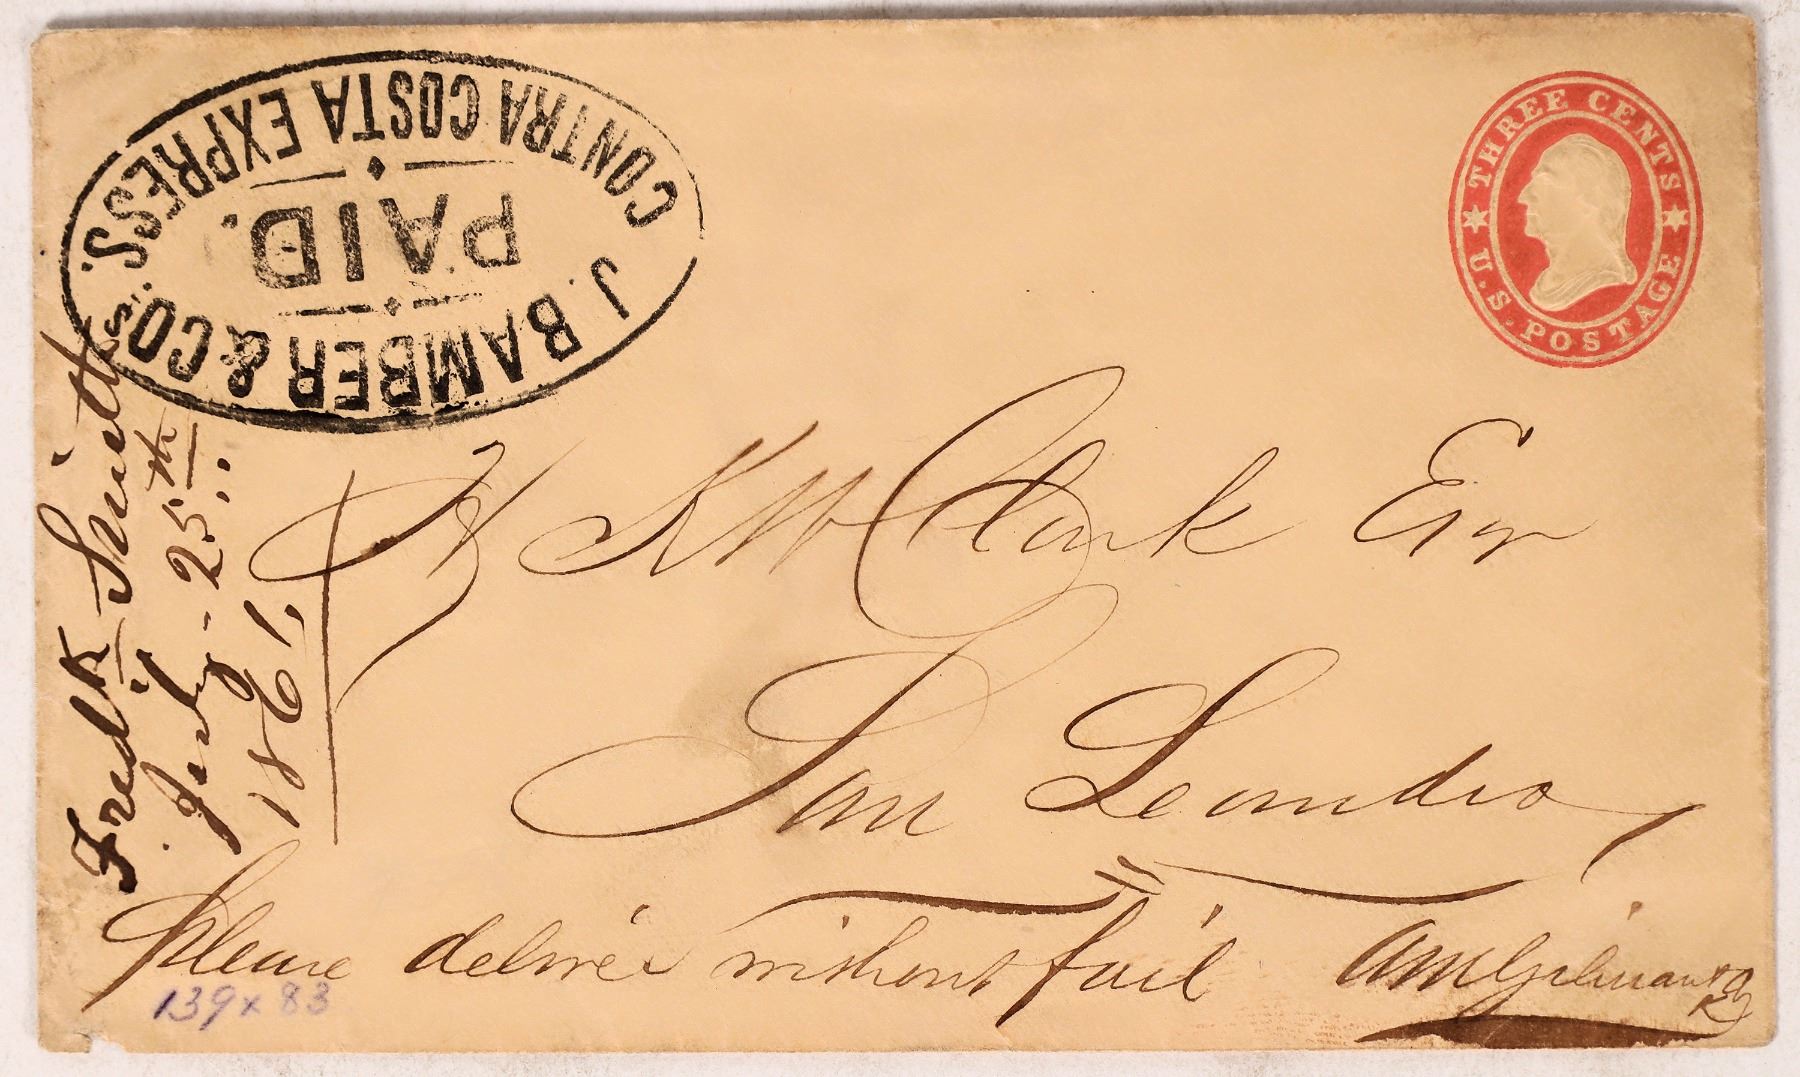 J. BAMBER & CO'S.
PAID.
CONTRA COSTA EXPRESS.
THREE CENTS
U.S. POSTAGE
Fredk
July - 25th
1861,
Clark Esq
San Leandro
Please deliver without fail AM Gilman
139 x 83